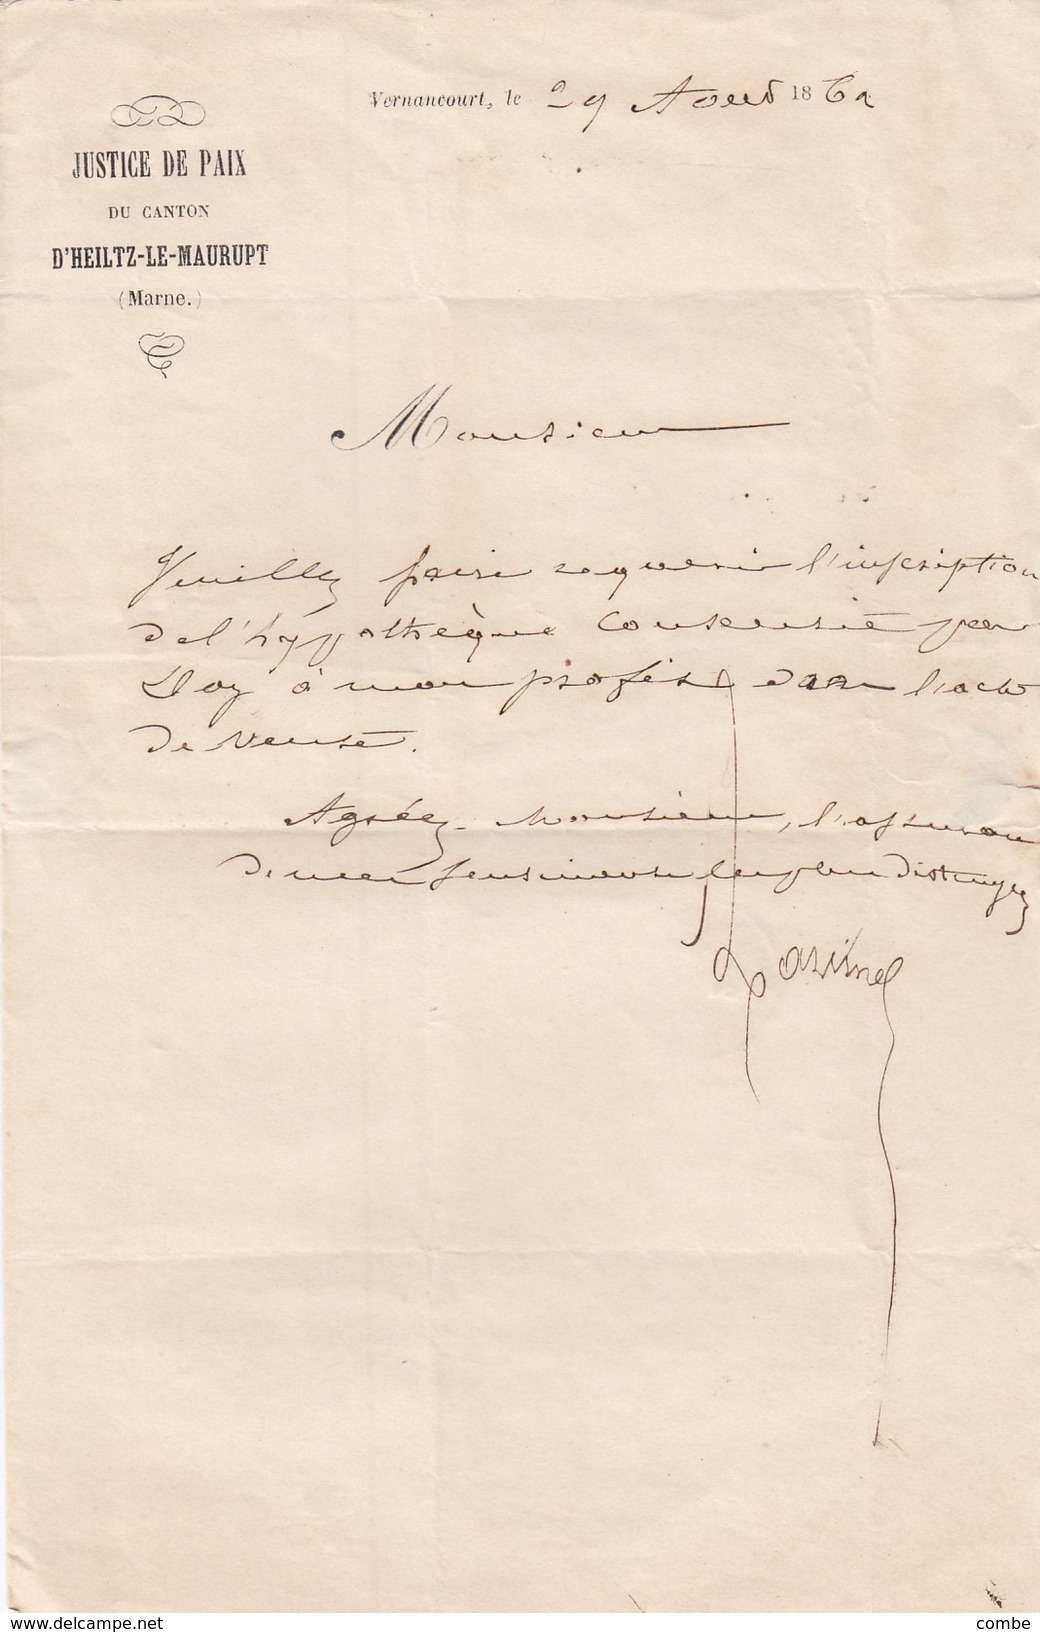 Vernancourt, le 29 Aout 1862
JUSTICE DE PAIX
DU CANTON
D'HEILTZ-LE-MAURUPT
(Marne.)
Monsieur
Veuillez faire requerir l'inscription
de l'hypothèque consentie par
à mon profit dans l'acte
de vente.
Agréez Monsieur, l'assurance
de mes sentiments les plus distingués
www.delcampe.net
combe